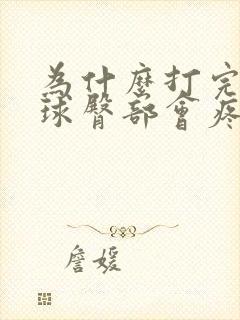 為什麼打完
球臀部會疼
詹媛